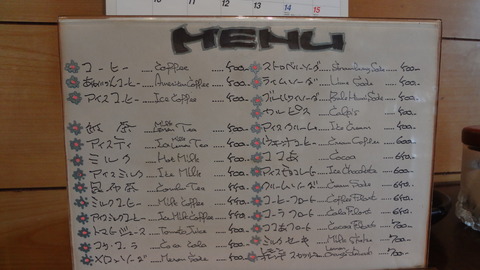 10 11 12 13 14 15
MENU
コーヒー ..... Coffee ..... 400-
アメリカンコーヒー ..... American Coffee ..... 400-
アイスコーヒー ..... Ice Coffee ..... 400-
紅茶 ..... Milk Lemon Tea ..... 400-
アイスティ ..... Milk Ice Lemon Tea ..... 400-
ミルク ..... Hot Milk ..... 400-
アイスミルク ..... Ice Milk ..... 400-
Tea ..... 400-
ミルクコーヒー ..... Milk Coffee ..... 400-
アイスミルクコーヒー ..... Ice Milk Coffee ..... 400-
トマトジュース ..... Tomato Juice ..... 400-
コカ・コーラ ..... Coca Cola ..... 400-
メロンソーダ ..... Melon Soda ..... 400-
ストロベリーソーダ ..... Strawberry Soda ..... 400-
ライムソーダ ..... Lime Soda ..... 400-
ブルーハワイソーダ ..... Blue Hawai Soda ..... 400-
カルピス ..... Calpis ..... 400-
アイスクリーム ..... Ice Cream ..... 400-
Coffee ..... 600-
ココア ..... Cocoa ..... 600-
アイスチョコレート ..... Ice Chocolate ..... 600-
クリームソーダ ..... Cream Soda ..... 650-
コーヒーフロート ..... Coffee Float ..... 650-
コーラフロート ..... Cola Float ..... 650-
ココアフロート ..... Cocoa Float ..... 700-
ミルクセーキ ..... Milk Shake ..... 700-
レモン オレンジ スカッシュ ..... Lemon Orange ..... 700-